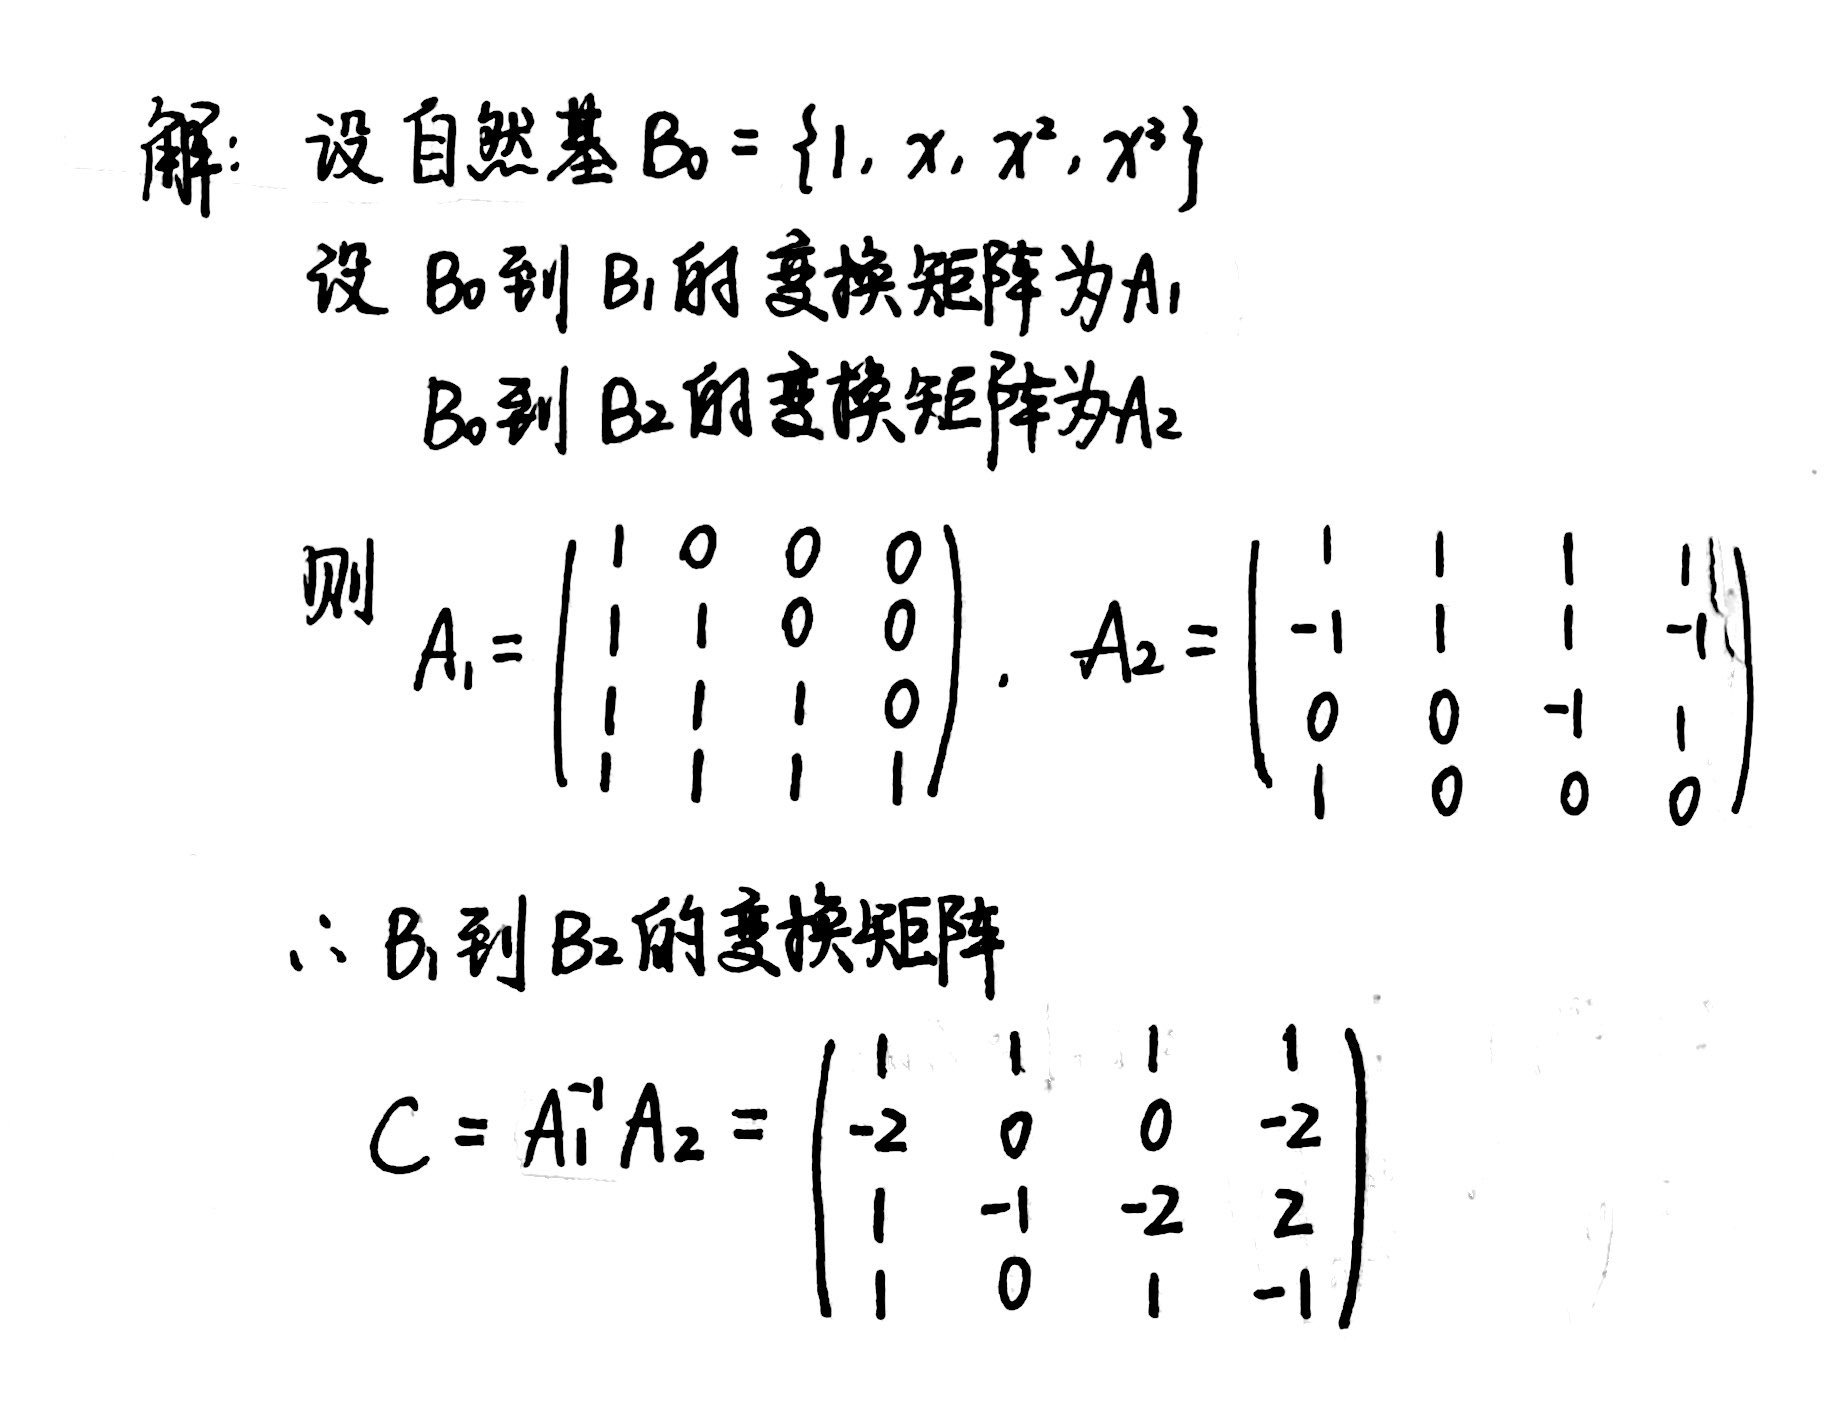 解: 设自然基 B₀ = {1, x, x², x³}
设 B₀到 B₁的变换矩阵为A₁
B₀到 B₂的变换矩阵为A₂
则 A₁ = ( 1 0 0 0 ; 1 1 0 0 ; 1 1 1 0 ; 1 1 1 1 ) . A₂ = ( 1 1 1 1 ; -1 1 1 -1 ; 0 0 -1 1 ; 1 0 0 0 )
∴ B₁到B₂的变换矩阵
C = A₁⁻¹A₂ = ( 1 1 1 1 ; -2 0 0 -2 ; 1 -1 -2 2 ; 1 0 1 -1 )